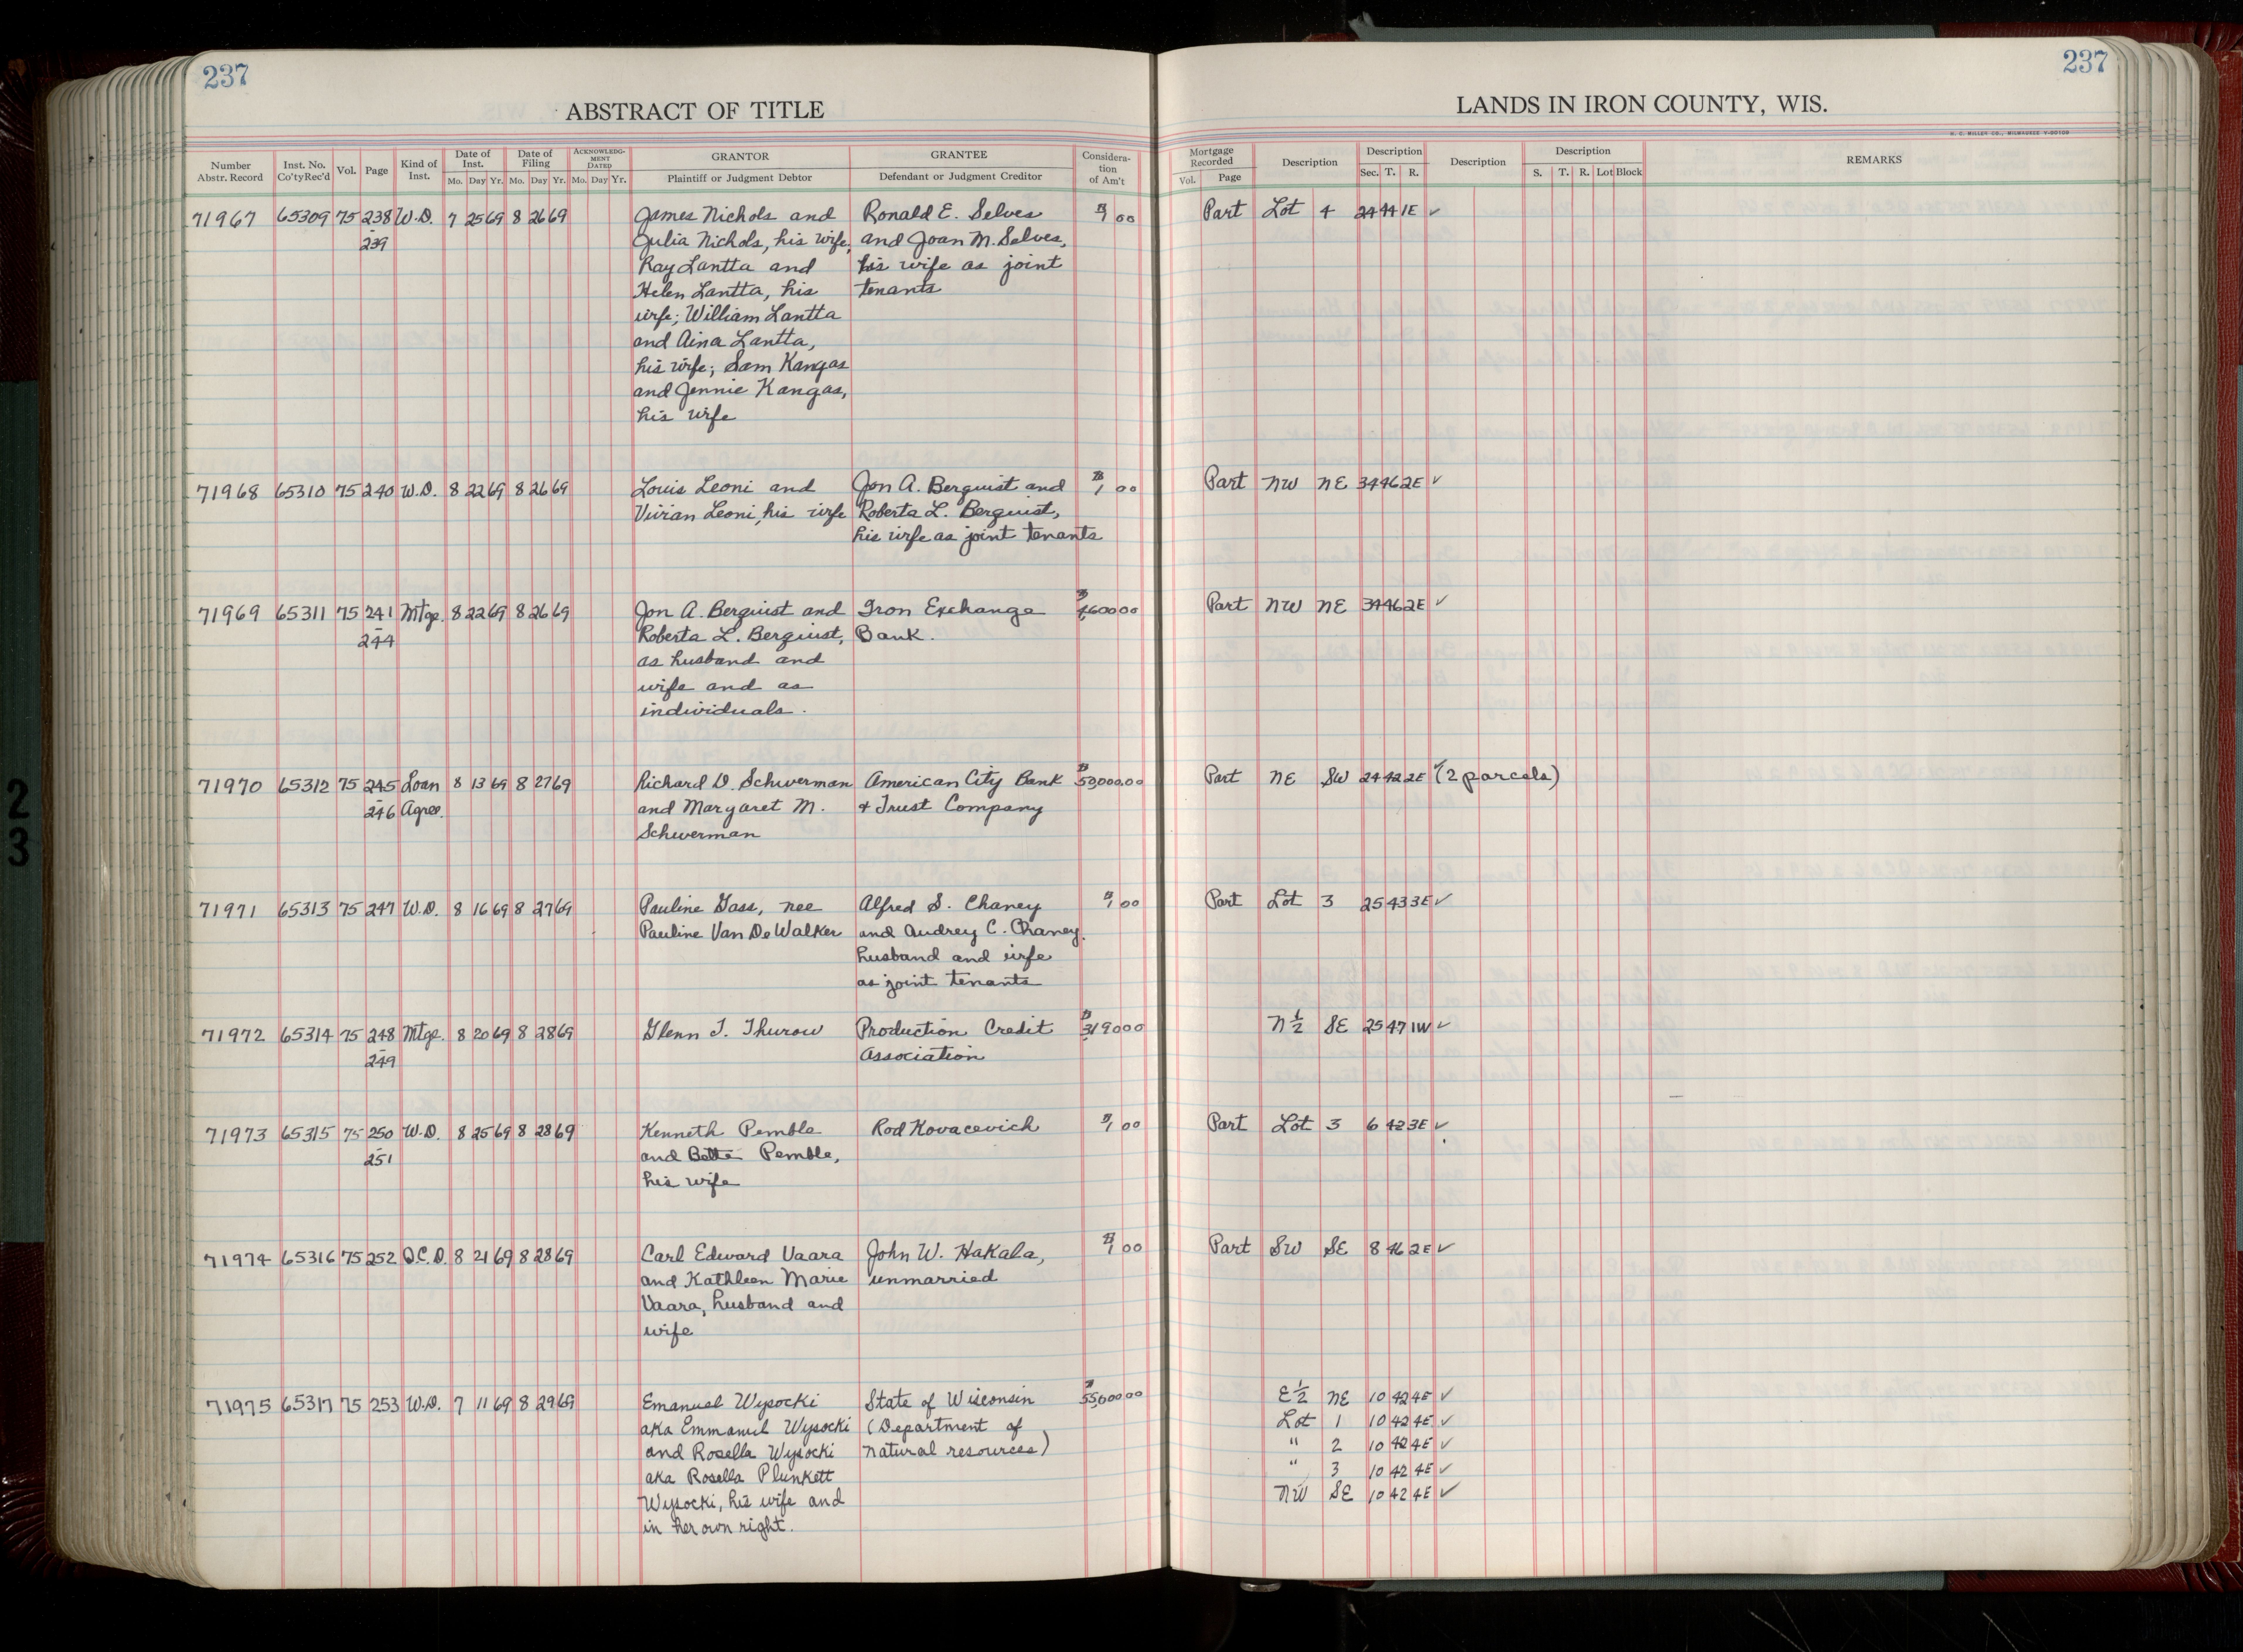 237
ABSTRACT OF TITLE
Number Abstr. Record
Inst. No. Co'ty Rec'd
Vol.
Page
Kind of Inst.
Date of Inst.
Mo. Day Yr.
Date of Filing
Mo. Day Yr.
ACKNOWLEDG-MENT DATED
Mo. Day Yr.
GRANTOR
Plaintiff or Judgment Debtor
GRANTEE
Defendant or Judgment Creditor
Considera-tion of Am't
71967 65309 75 238 W.D. 7 25 69 8 26 69 James Nichols and Ronald E. Selves $1 00
-239 Julia Nichols, his wife; and Joan M. Selves,
Ray Lantta and his wife as joint
Helen Lantta, his tenants
wife; William Lantta
and Aina Lantta,
his wife; Sam Kangas
and Jennie Kangas,
his wife
71968 65310 75 240 W.D. 8 22 69 8 26 69 Louis Leoni and Jon A. Berquist and $1 00
Vivian Leoni, his wife Roberta L. Berquist,
his wife as joint tenants
71969 65311 75 241 Mtge. 8 22 69 8 26 69 Jon A. Berquist and Iron Exchange
-244 Roberta L. Berquist, Bank.
as husband and
wife and as
individuals.
71970 65312 75 245 Loan 8 13 69 8 27 69 Richard D. Schwerman American City Bank $50,000.00
-246 Agree. and Margaret M. & Trust Company
Schwerman
71971 65313 75 247 W.D. 8 16 69 8 27 69 Pauline Gass, nee Alfred S. Chaney $1 00
Pauline Van De Walker and Audrey C. Chaney,
husband and wife
as joint tenants
71972 65314 75 248 Mtge. 8 20 69 8 28 69 Glenn T. Thurow Production Credit $3190 00
-249 Association
71973 65315 75 250 W.D. 8 25 69 8 28 69 Kenneth Pemble Rod Kovacevich $1 00
-251 and Bette Pemble,
his wife
71974 65316 75 252 Q.C.D. 8 21 69 8 28 69 Carl Edward Vaara John W. Hakala, $1 00
and Kathleen Marie unmarried
Vaara, husband and
wife
71975 65317 75 253 W.D. 7 11 69 8 29 69 Emanuel Wysocki State of Wisconsin
aka Emmanuel Wysocki (Department of
and Rosella Wysocki natural resources)
aka Rosella Plunkett
Wysocki, his wife and
in her own right.
237
LANDS IN IRON COUNTY, WIS.
H. C. MILLER CO., MILWAUKEE V-90109
Mortgage Recorded
Vol. Page
Description
Description
Sec. T. R.
Description
Description
S. T. R. Lot Block
REMARKS
Part Lot 4 24 44 1E ✓
Part NW NE 34 46 2E ✓
Part NW NE 34 46 2E ✓
Part NE SW 24 42 2E ✓ (2 parcels)
Part Lot 3 25 43 3E ✓
N½ SE 25 47 1W ✓
Part Lot 3 6 42 3E ✓
Part SW SE 8 46 2E ✓
E½ NE 10 42 4E ✓
Lot 1 10 42 4E ✓
" 2 10 42 4E ✓
" 3 10 42 4E ✓
NW SE 10 42 4E ✓
2
3